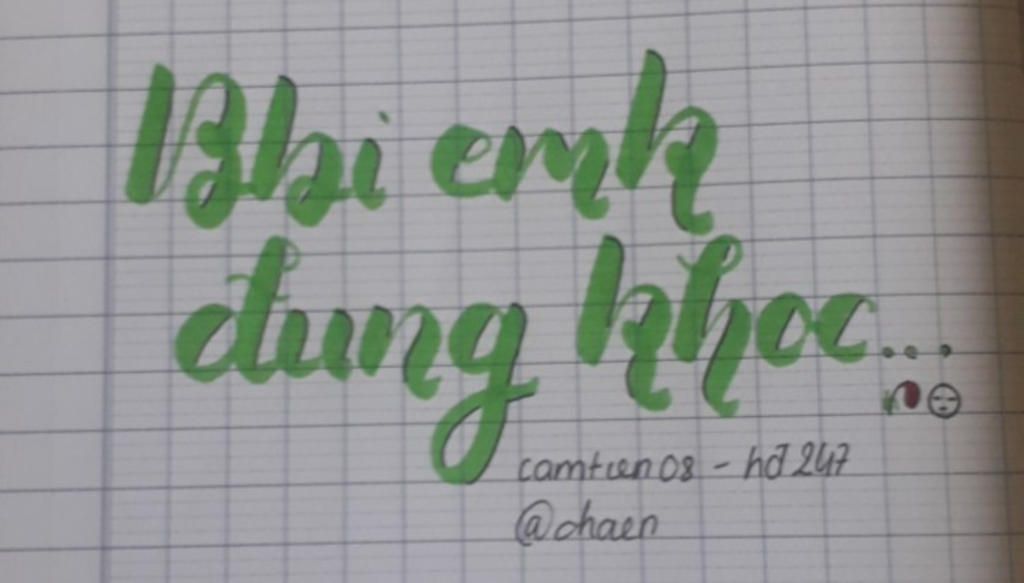 Bhi emk
đung khoc...
camtien08 - hđ 247
@chaen